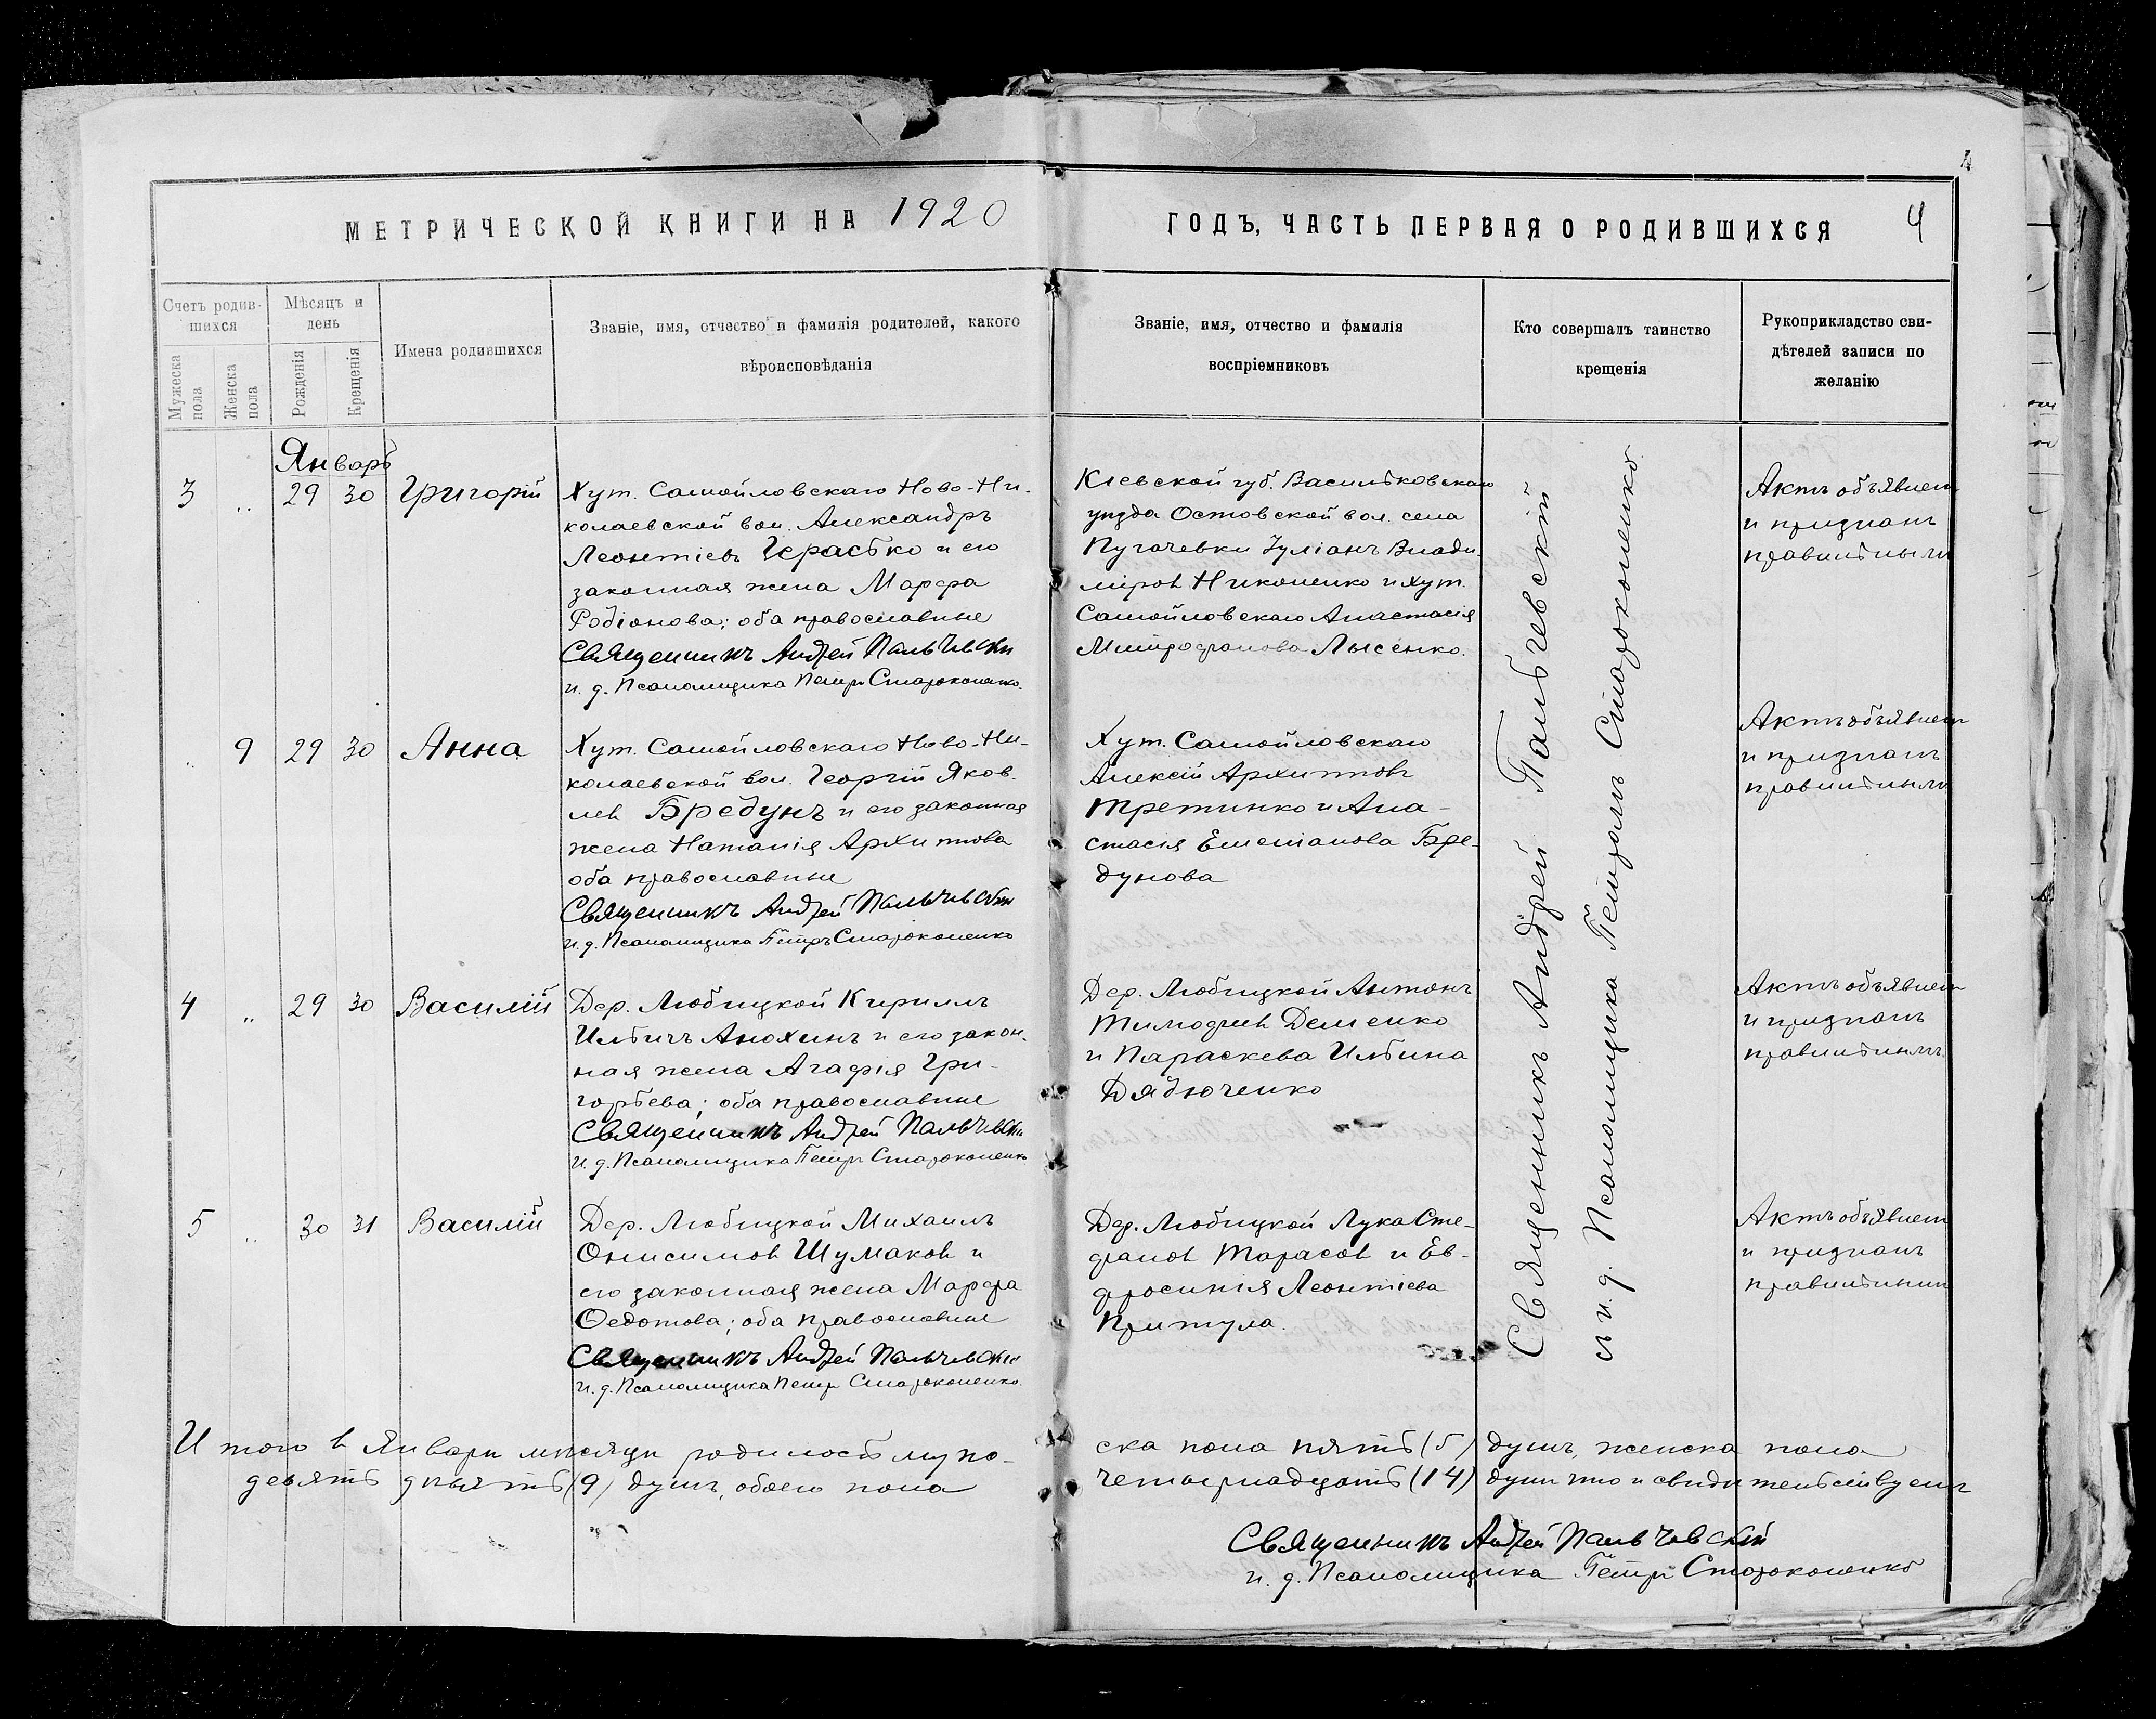 4
МЕТРИЧЕСКОЙ КНИГИ НА 1920
ГОДЪ, ЧАСТЬ ПЕРВАЯ О РОДИВШИХСЯ 4
Счетъ родив-
шихся
Мужеска
пола
Женска
пола
Мѣсяцъ и
день
Рожденія
Крещенія
Имена родившихся
Званіе, имя, отчество и фамилія родителей, какого
вѣроисповѣданія
Званіе, имя, отчество и фамилія
воспріемниковъ
Кто совершалъ таинство
крещенія
Рукоприкладство сви-
дѣтелей записи по
желанію
Январь
3 „ 29 30 Григорій
Хут. Самойловскаго Ново-Ни-
колаевской вол. Александръ
Леонтіевъ Герасько и его
законная жена Марфа
Родіонова; оба православные
Священникъ Андрей Пальчевскій
и. д. Псаломщика Петръ Староконенко.
Кіевской губ. Васильковскаго
уѣзда Остовской вол. села
Пугачевки Іуліанъ Влади-
міровъ Никоненко и хут.
Самойловскаго Анастасія
Митрофанова Лысенко.
Актъ объявленъ
и признанъ
правильнымъ
„ 9 29 30 Анна
Хут. Самойловскаго Ново-Ни-
колаевской вол. Георгій Яков-
левъ Бредунъ и его законная
жена Наталія Архипова
оба православные
Священникъ Андрей Пальчевскій
и. д. Псаломщика Петръ Староконенко
Хут. Самойловскаго
Алексій Архиповъ
Третинко и Ана-
стасія Емеліанова Бре-
дунова
Актъ объявленъ
и признанъ
правильнымъ
4 „ 29 30 Василій
Дер. Любицкой Кириллъ
Ильичъ Анохинъ и его закон-
ная жена Агафія Гри-
горьева; оба православные
Священникъ Андрей Пальчевскій
и. д. Псаломщика Петръ Староконенко
Дер. Любицкой Антонъ
Тимофіевъ Деменко
и Параскева Ильина
Дядюченко
Актъ объявленъ
и признанъ
правильнымъ
5 „ 30 31 Василій
Дер. Любицкой Михаилъ
Онисимовъ Шумаковъ и
его законная жена Марфа
Ѳедотова; оба православные
Священникъ Андрей Пальчевскій
и. д. Псаломщика Петръ Староконенко.
Дер. Любицкой Лука Сте-
фановъ Тарасовъ и Ев-
фросинія Леонтіева
Притула.
Актъ объявленъ
и признанъ
правильнымъ
Священникъ Андрей Пальчевскій
съ и. д. Псаломщика Петромъ Староконенко
Итого въ Январѣ мѣсяцѣ родилось муже-
ска пола пять (5) душъ, женска пола
девять (9) душъ, обоего пола
четырнадцать (14) душъ что и свидѣтельствуемъ
Священникъ Андрей Пальчевскій
и. д. Псаломщика Петръ Староконенко